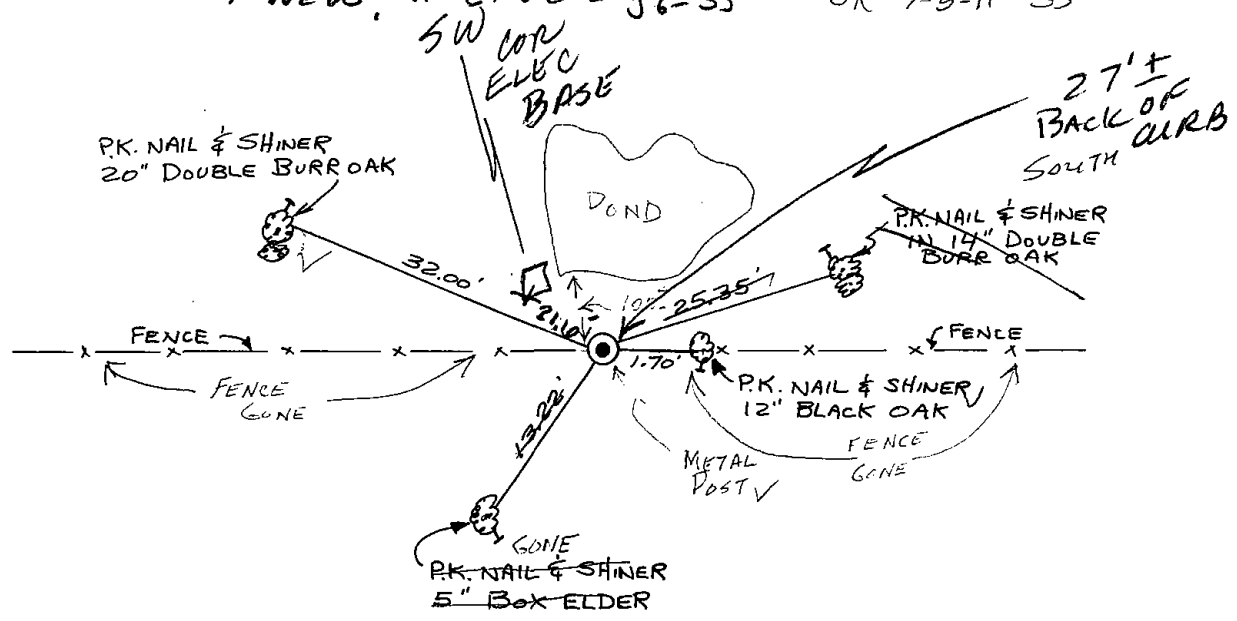 SW
COR
ELEC
BASE
27'±
BACK OF
CURB
SOUTH
P.K. NAIL & SHINER
20" DOUBLE BURR OAK
POND
P.K. NAIL & SHINER
IN 14" DOUBLE
BURR OAK
32.00'
21.10'
25.35'
FENCE
FENCE
1.70'
FENCE
GONE
P.K. NAIL & SHINER
12" BLACK OAK
13.22'
METAL
POST
FENCE
GONE
GONE
P.K. NAIL & SHINER
5" BOX ELDER